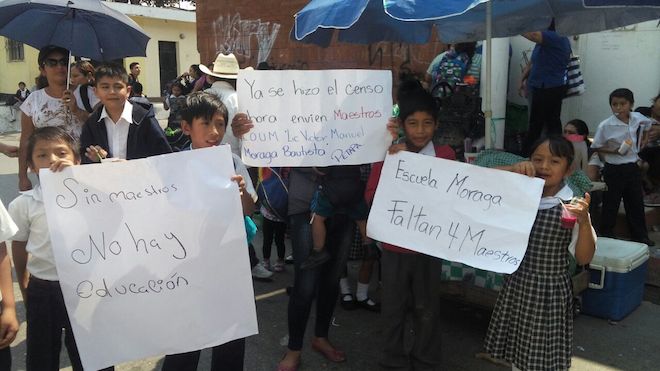 Ya se hizo el censo
ahora envien Maestros
COUM Lc Victor Manuel
Moraga Bautista.
Sin maestros
No hay
educación
Escuela Moraga
Faltan 4 Maestros